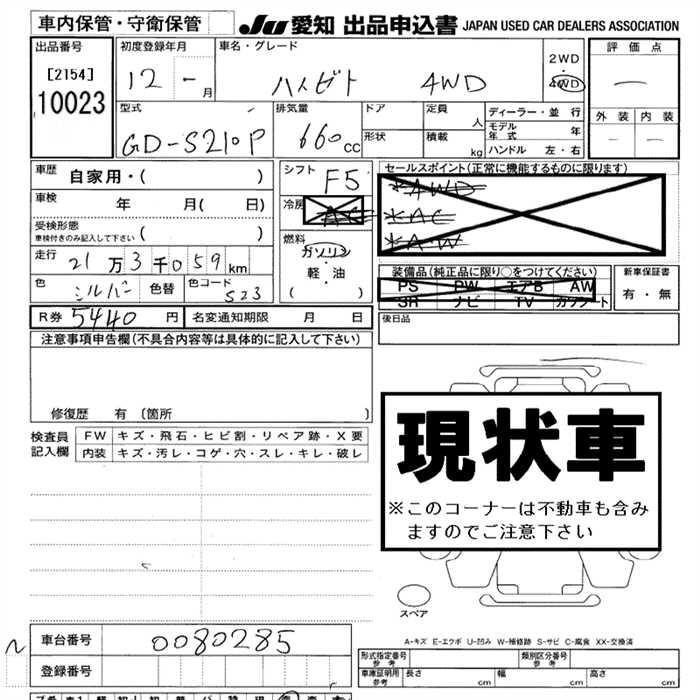 車内保管・守衛保管
JU 愛知 出品申込書 JAPAN USED CAR DEALERS ASSOCIATION
出品番号
[2154]
10023
初度登録年月
12 - 月
車名・グレード
ハイゼット 4WD
2WD
・
4WD
評価点
—
外装 内装
型式
GD-S210P
排気量
660cc
ドア
形状
定員 人
積載 kg
ディーラー・並行
モデル年式 年
ハンドル 左・右
車歴
自家用・( )
車検 年 月( 日)
受検形態
車検付きのみ記入して下さい ( )
走行 21万3千059km
色 シルバー 色替 色コード S23
シフト F5
冷房 AC
燃料
ガソリン
軽・油
( )
セールスポイント(正常に機能するものに限ります)
*4WD
*AC
*AW
装備品(純正品に限り○をつけてください)
PS PW エアB AW
SR ナビ TV カワシート
新車保証書
有・無
R券 5440 円 名変通知期限 月 日
後日品
注意事項申告欄(不具合内容等は具体的に記入して下さい)
修復歴 有 〔箇所 〕
検査員記入欄
FW キズ・飛石・ヒビ割・リペア跡・X要
内装 キズ・汚レ・コゲ・穴・スレ・キレ・破レ
現状車
※このコーナーは不動車も含み
ますのでご注意下さい
スペア
A-キズ E-エクボ U-凹み W-補修跡 S-サビ C-腐食 XX-交換済
車台番号 0080285
登録番号
形式指定番号 参考
類別区分番号 参考
車庫証明用 参考 長さ cm 幅 cm 高さ cm